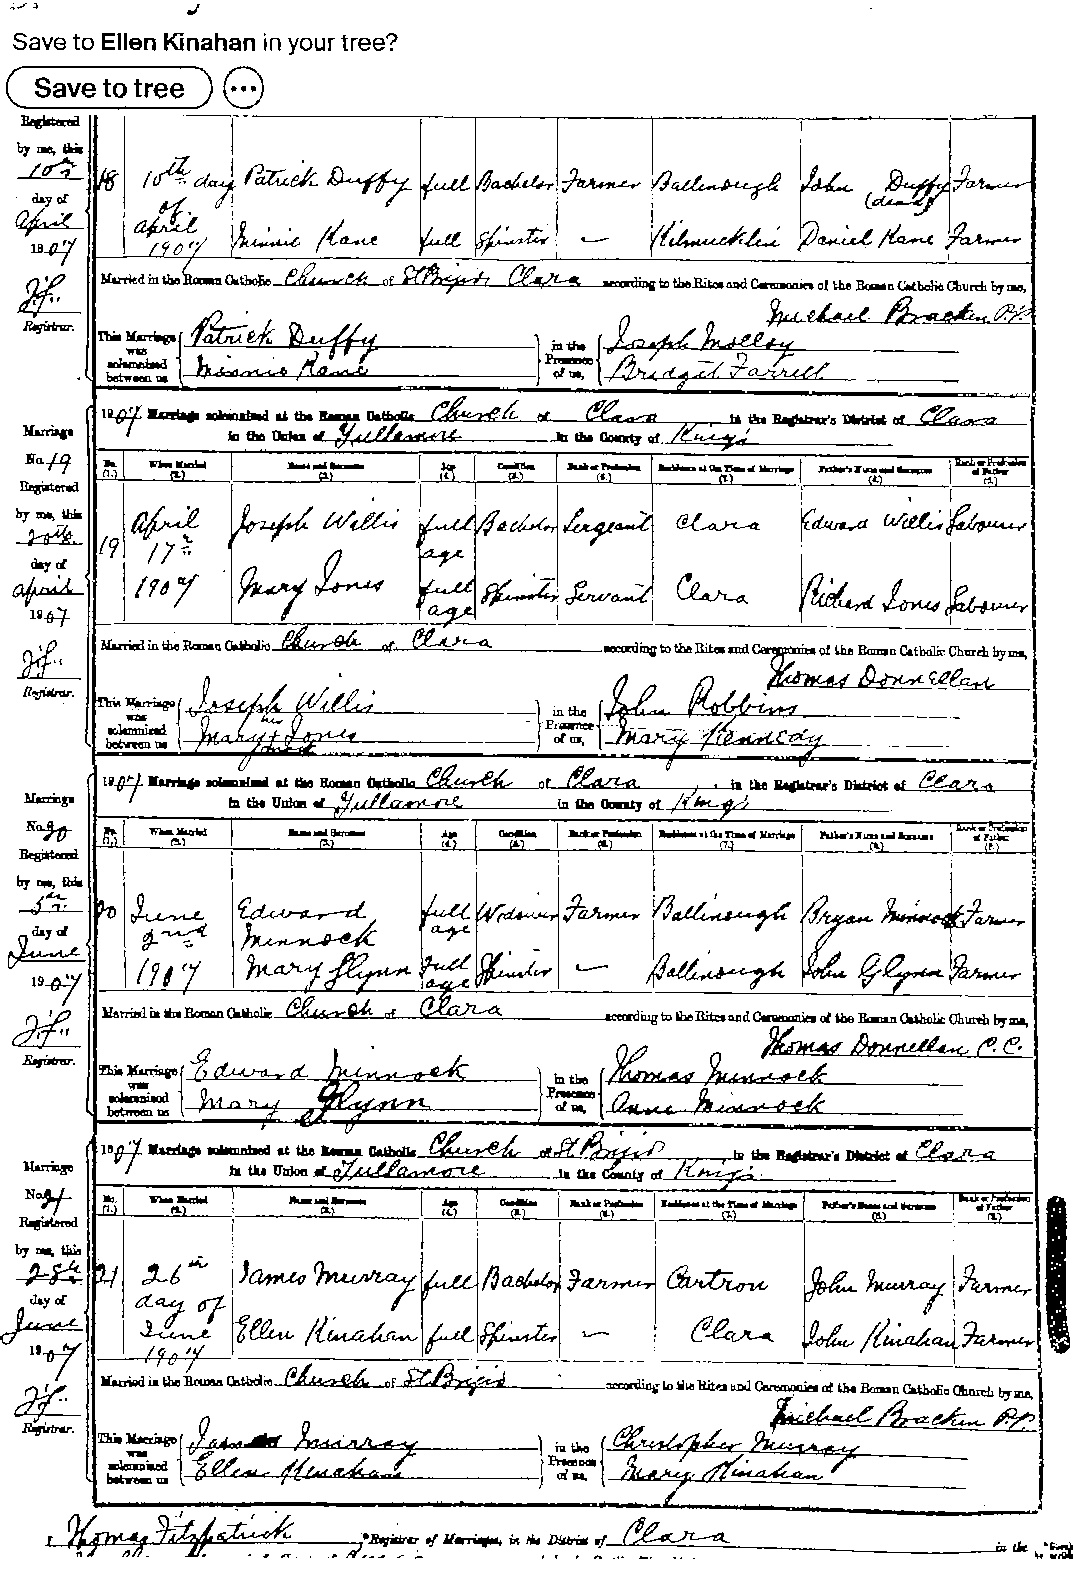 Save to Ellen Kinahan in your tree?
Save to tree
Registered by me, this 10th day of April 1907
J.F. Registrar.
18 10th day of April 1907 Patrick Duffy full Bachelor Farmer Ballinough John Duffy (dead) Farmer
Minnie Kane full Spinster — Kilmucklin Daniel Kane Farmer
Married in the Roman Catholic Church of St Brigid Clara according to the Rites and Ceremonies of the Roman Catholic Church by me,
Michael Bracken P.P.
This Marriage was solemnized between us Patrick Duffy in the Presence of us, Joseph Molloy
Minnie Kane Bridget Farrell
1907 Marriage solemnized at the Roman Catholic Church of Clara in the Registrar's District of Clara
in the Union of Tullamore in the County of King's
Marriage No. 19
Registered by me, this 20th day of April 1907
J.F. Registrar.
No. (1.) When Married (2.) Name and Surname (3.) Age (4.) Condition (5.) Rank or Profession (6.) Residence at the Time of Marriage (7.) Father's Name and Surname (8.) Rank or Profession of Father (9.)
19 April 17th 1907 Joseph Willis full age Bachelor Sergeant Clara Edward Willis Labourer
Mary Jones full age Spinster Servant Clara Richard Jones Labourer
Married in the Roman Catholic Church of Clara according to the Rites and Ceremonies of the Roman Catholic Church by me,
Thomas Donnellan
This Marriage was solemnized between us Joseph Willis in the Presence of us, John Robbins
Mary x Jones Mary Kennedy
1907 Marriage solemnized at the Roman Catholic Church of Clara in the Registrar's District of Clara
in the Union of Tullamore in the County of King's
Marriage No. 20
Registered by me, this 5th day of June 1907
J.F. Registrar.
No. (1.) When Married (2.) Name and Surname (3.) Age (4.) Condition (5.) Rank or Profession (6.) Residence at the Time of Marriage (7.) Father's Name and Surname (8.) Rank or Profession of Father (9.)
20 June 2nd 1907 Edward Minnock full age Widower Farmer Ballinough Bryan Minnock Farmer
Mary Glynn full age Spinster — Ballinough John Glynn Farmer
Married in the Roman Catholic Church of Clara according to the Rites and Ceremonies of the Roman Catholic Church by me,
Thomas Donnellan C.C.
This Marriage was solemnized between us Edward Minnock in the Presence of us, Thomas Minnock
Mary Glynn Anne Minnock
1907 Marriage solemnized at the Roman Catholic Church of St Brigid in the Registrar's District of Clara
in the Union of Tullamore in the County of King's
Marriage No. 21
Registered by me, this 28th day of June 1907
J.F. Registrar.
No. (1.) When Married (2.) Name and Surname (3.) Age (4.) Condition (5.) Rank or Profession (6.) Residence at the Time of Marriage (7.) Father's Name and Surname (8.) Rank or Profession of Father (9.)
21 26th day of June 1907 James Murray full Bachelor Farmer Cartron John Murray Farmer
Ellen Kinahan full Spinster — Clara John Kinahan Farmer
Married in the Roman Catholic Church of St Brigid according to the Rites and Ceremonies of the Roman Catholic Church by me,
Michael Bracken P.P.
This Marriage was solemnized between us James Murray in the Presence of us, Christopher Murray
Ellen Kinahan Mary Kinahan
Thomas Fitzpatrick Registrar of Marriages, in the District of Clara in the